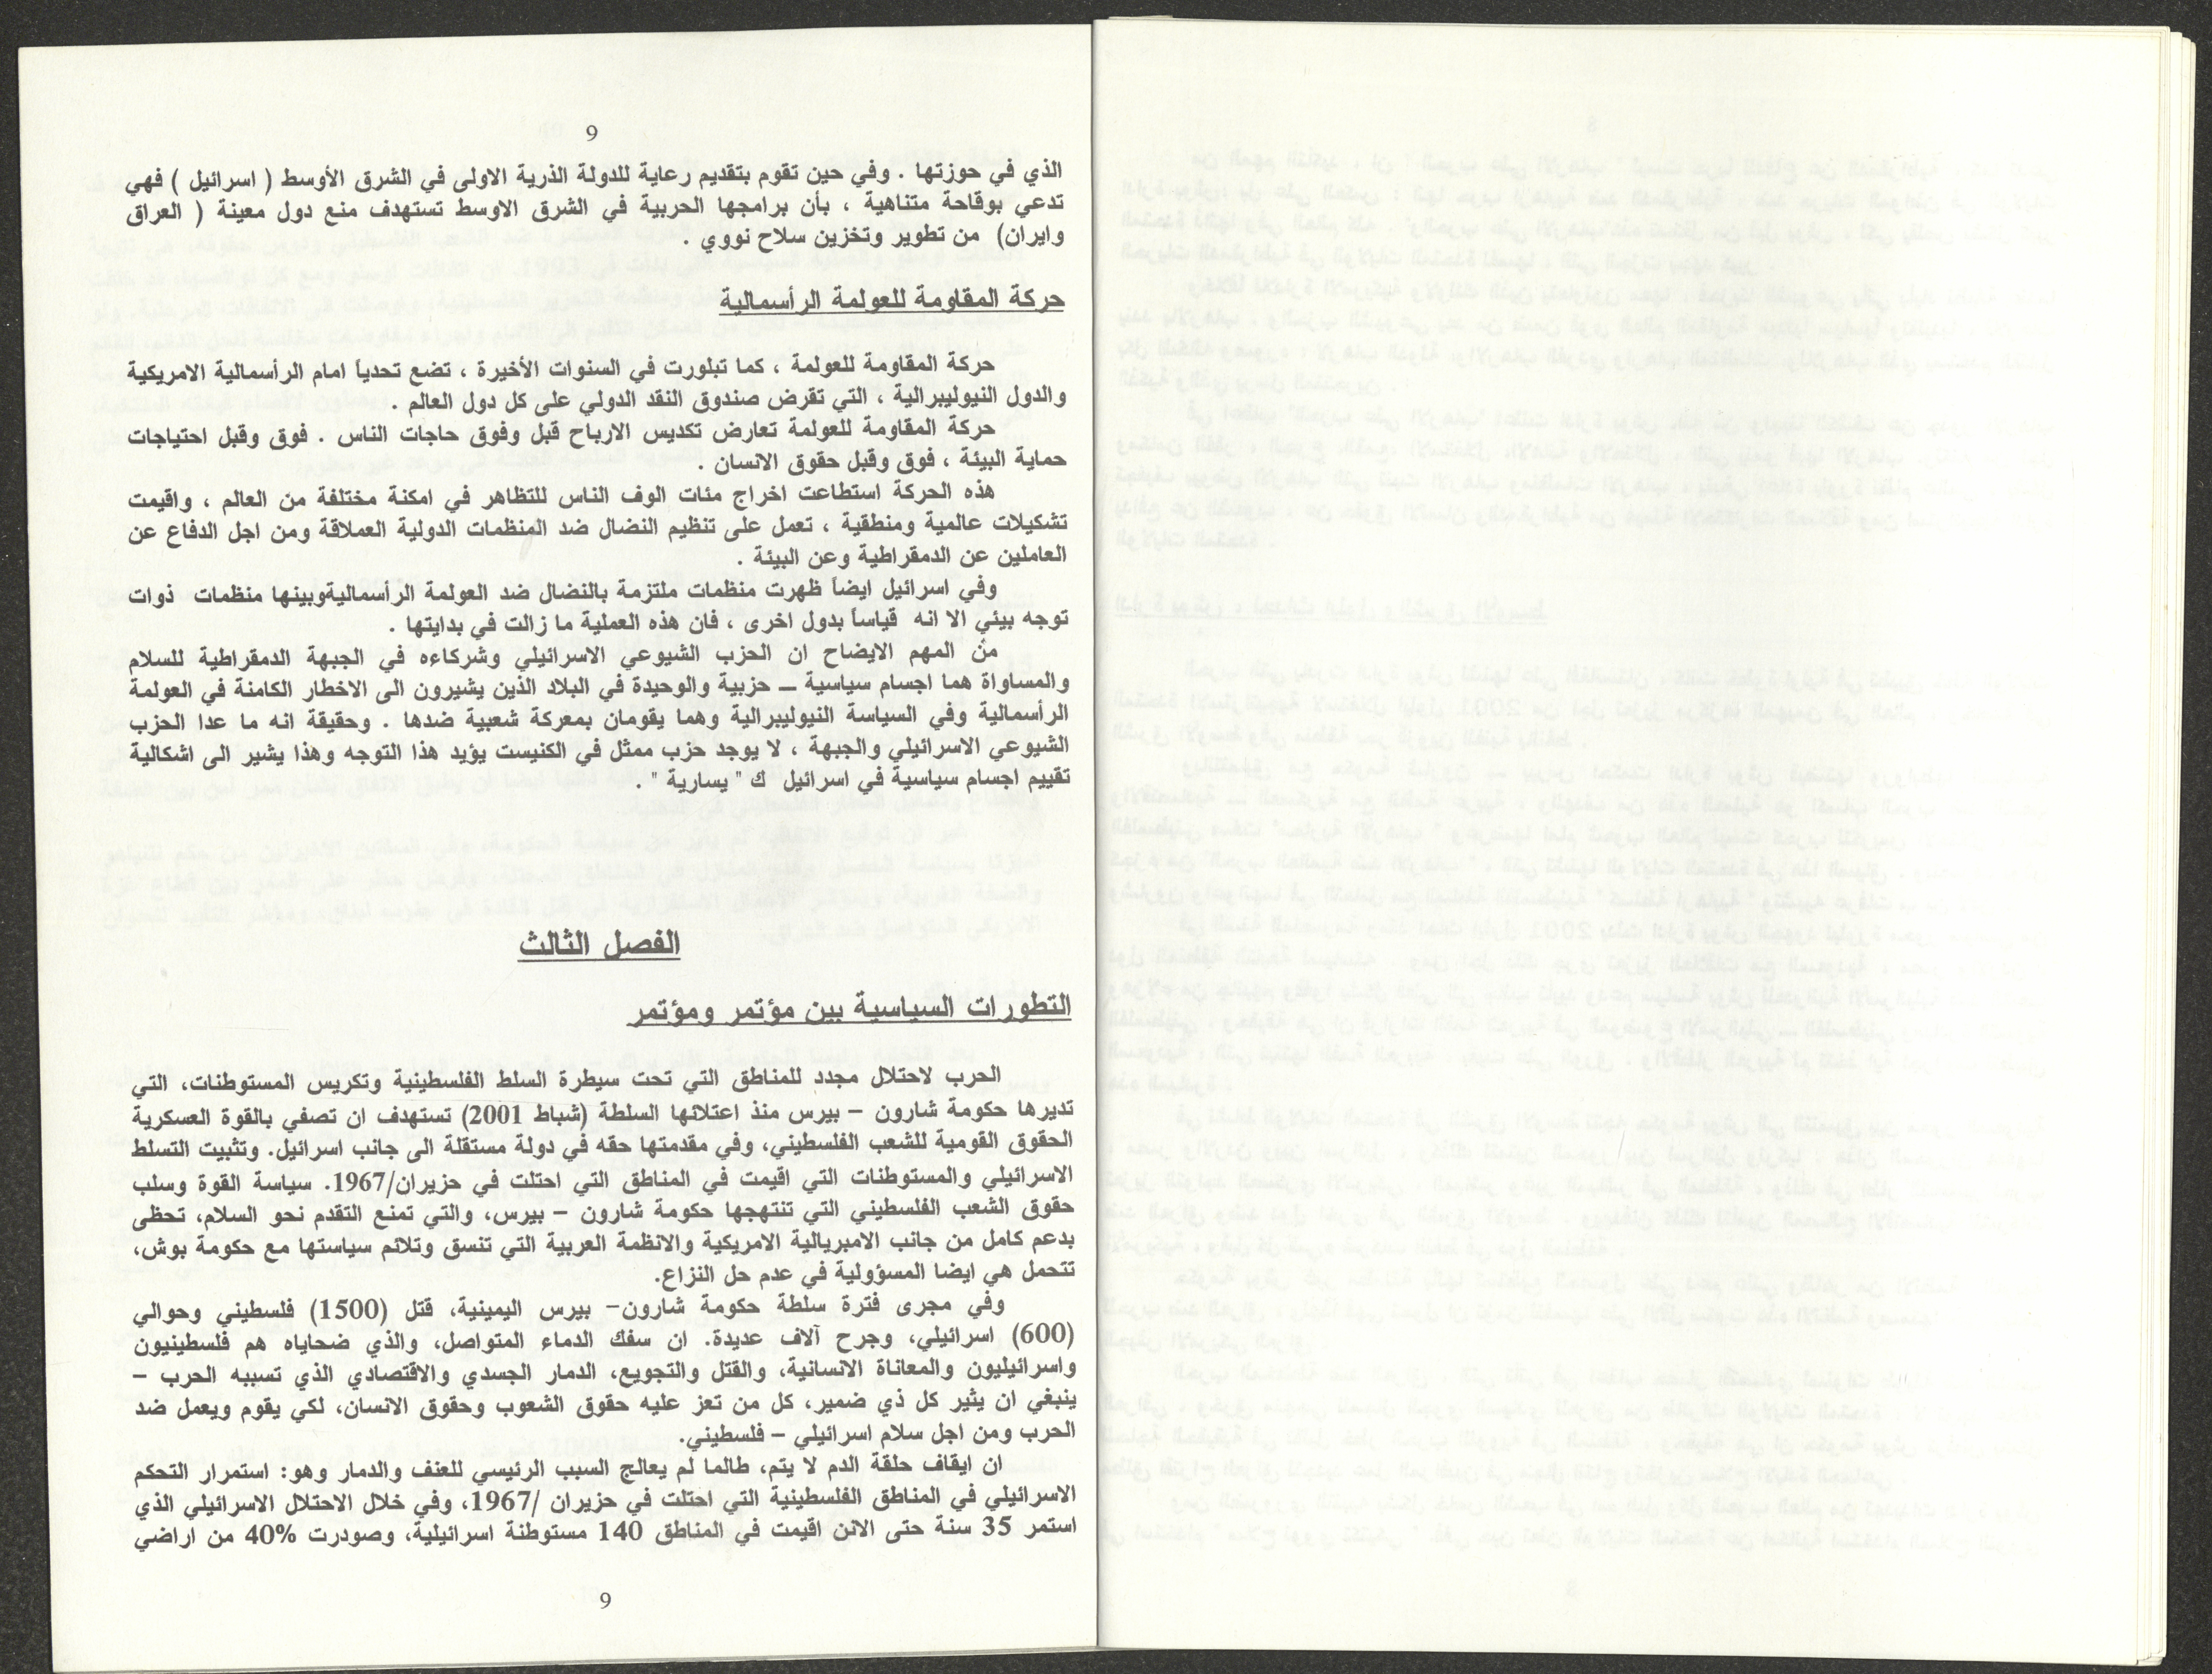 9
الذي في حوزتها . وفي حين تقوم بتقديم رعاية للدولة الذرية الاولى في الشرق الأوسط ( اسرائيل ) فهي
تدعي بوقاحة متناهية ، بأن برامجها الحربية في الشرق الاوسط تستهدف منع دول معينة ( العراق
وايران) من تطوير وتخزين سلاح نووي .
حركة المقاومة للعولمة الرأسمالية
حركة المقاومة للعولمة ، كما تبلورت في السنوات الأخيرة ، تضع تحدياً امام الرأسمالية الامريكية
والدول النيوليبرالية ، التي تقرض صندوق النقد الدولي على كل دول العالم .
حركة المقاومة للعولمة تعارض تكديس الارباح قبل وفوق حاجات الناس . فوق وقبل احتياجات
حماية البيئة ، فوق وقبل حقوق الانسان .
هذه الحركة استطاعت اخراج مئات الوف الناس للتظاهر في امكنة مختلفة من العالم ، واقيمت
تشكيلات عالمية ومنطقية ، تعمل على تنظيم النضال ضد المنظمات الدولية العملاقة ومن اجل الدفاع عن
العاملين عن الدمقراطية وعن البيئة .
وفي اسرائيل ايضاً ظهرت منظمات ملتزمة بالنضال ضد العولمة الرأسماليةوبينها منظمات ذوات
توجه بيئي الا انه قياساً بدول اخرى ، فان هذه العملية ما زالت في بدايتها .
من المهم الايضاح ان الحزب الشيوعي الاسرائيلي وشركاءه في الجبهة الدمقراطية للسلام
والمساواة هما اجسام سياسية ــ حزبية والوحيدة في البلاد الذين يشيرون الى الاخطار الكامنة في العولمة
الرأسمالية وفي السياسة النيوليبرالية وهما يقومان بمعركة شعبية ضدها . وحقيقة انه ما عدا الحزب
الشيوعي الاسرائيلي والجبهة ، لا يوجد حزب ممثل في الكنيست يؤيد هذا التوجه وهذا يشير الى اشكالية
تقييم اجسام سياسية في اسرائيل ك " يسارية " .
الفصل الثالث
التطورات السياسية بين مؤتمر ومؤتمر
الحرب لاحتلال مجدد للمناطق التي تحت سيطرة السلط الفلسطينية وتكريس المستوطنات، التي
تديرها حكومة شارون – بيرس منذ اعتلائها السلطة (شباط 2001) تستهدف ان تصفي بالقوة العسكرية
الحقوق القومية للشعب الفلسطيني، وفي مقدمتها حقه في دولة مستقلة الى جانب اسرائيل. وتثبيت التسلط
الاسرائيلي والمستوطنات التي اقيمت في المناطق التي احتلت في حزيران/1967. سياسة القوة وسلب
حقوق الشعب الفلسطيني التي تنتهجها حكومة شارون – بيرس، والتي تمنع التقدم نحو السلام، تحظى
بدعم كامل من جانب الامبريالية الامريكية والانظمة العربية التي تنسق وتلائم سياستها مع حكومة بوش،
تتحمل هي ايضا المسؤولية في عدم حل النزاع.
وفي مجرى فترة سلطة حكومة شارون– بيرس اليمينية، قتل (1500) فلسطيني وحوالي
(600) اسرائيلي، وجرح آلاف عديدة. ان سفك الدماء المتواصل، والذي ضحاياه هم فلسطينيون
واسرائيليون والمعاناة الانسانية، والقتل والتجويع، الدمار الجسدي والاقتصادي الذي تسببه الحرب –
ينبغي ان يثير كل ذي ضمير، كل من تعز عليه حقوق الشعوب وحقوق الانسان، لكي يقوم ويعمل ضد
الحرب ومن اجل سلام اسرائيلي – فلسطيني.
ان ايقاف حلقة الدم لا يتم، طالما لم يعالج السبب الرئيسي للعنف والدمار وهو: استمرار التحكم
الاسرائيلي في المناطق الفلسطينية التي احتلت في حزيران /1967، وفي خلال الاحتلال الاسرائيلي الذي
استمر 35 سنة حتى الائن اقيمت في المناطق 140 مستوطنة اسرائيلية، وصودرت 40% من اراضي
9